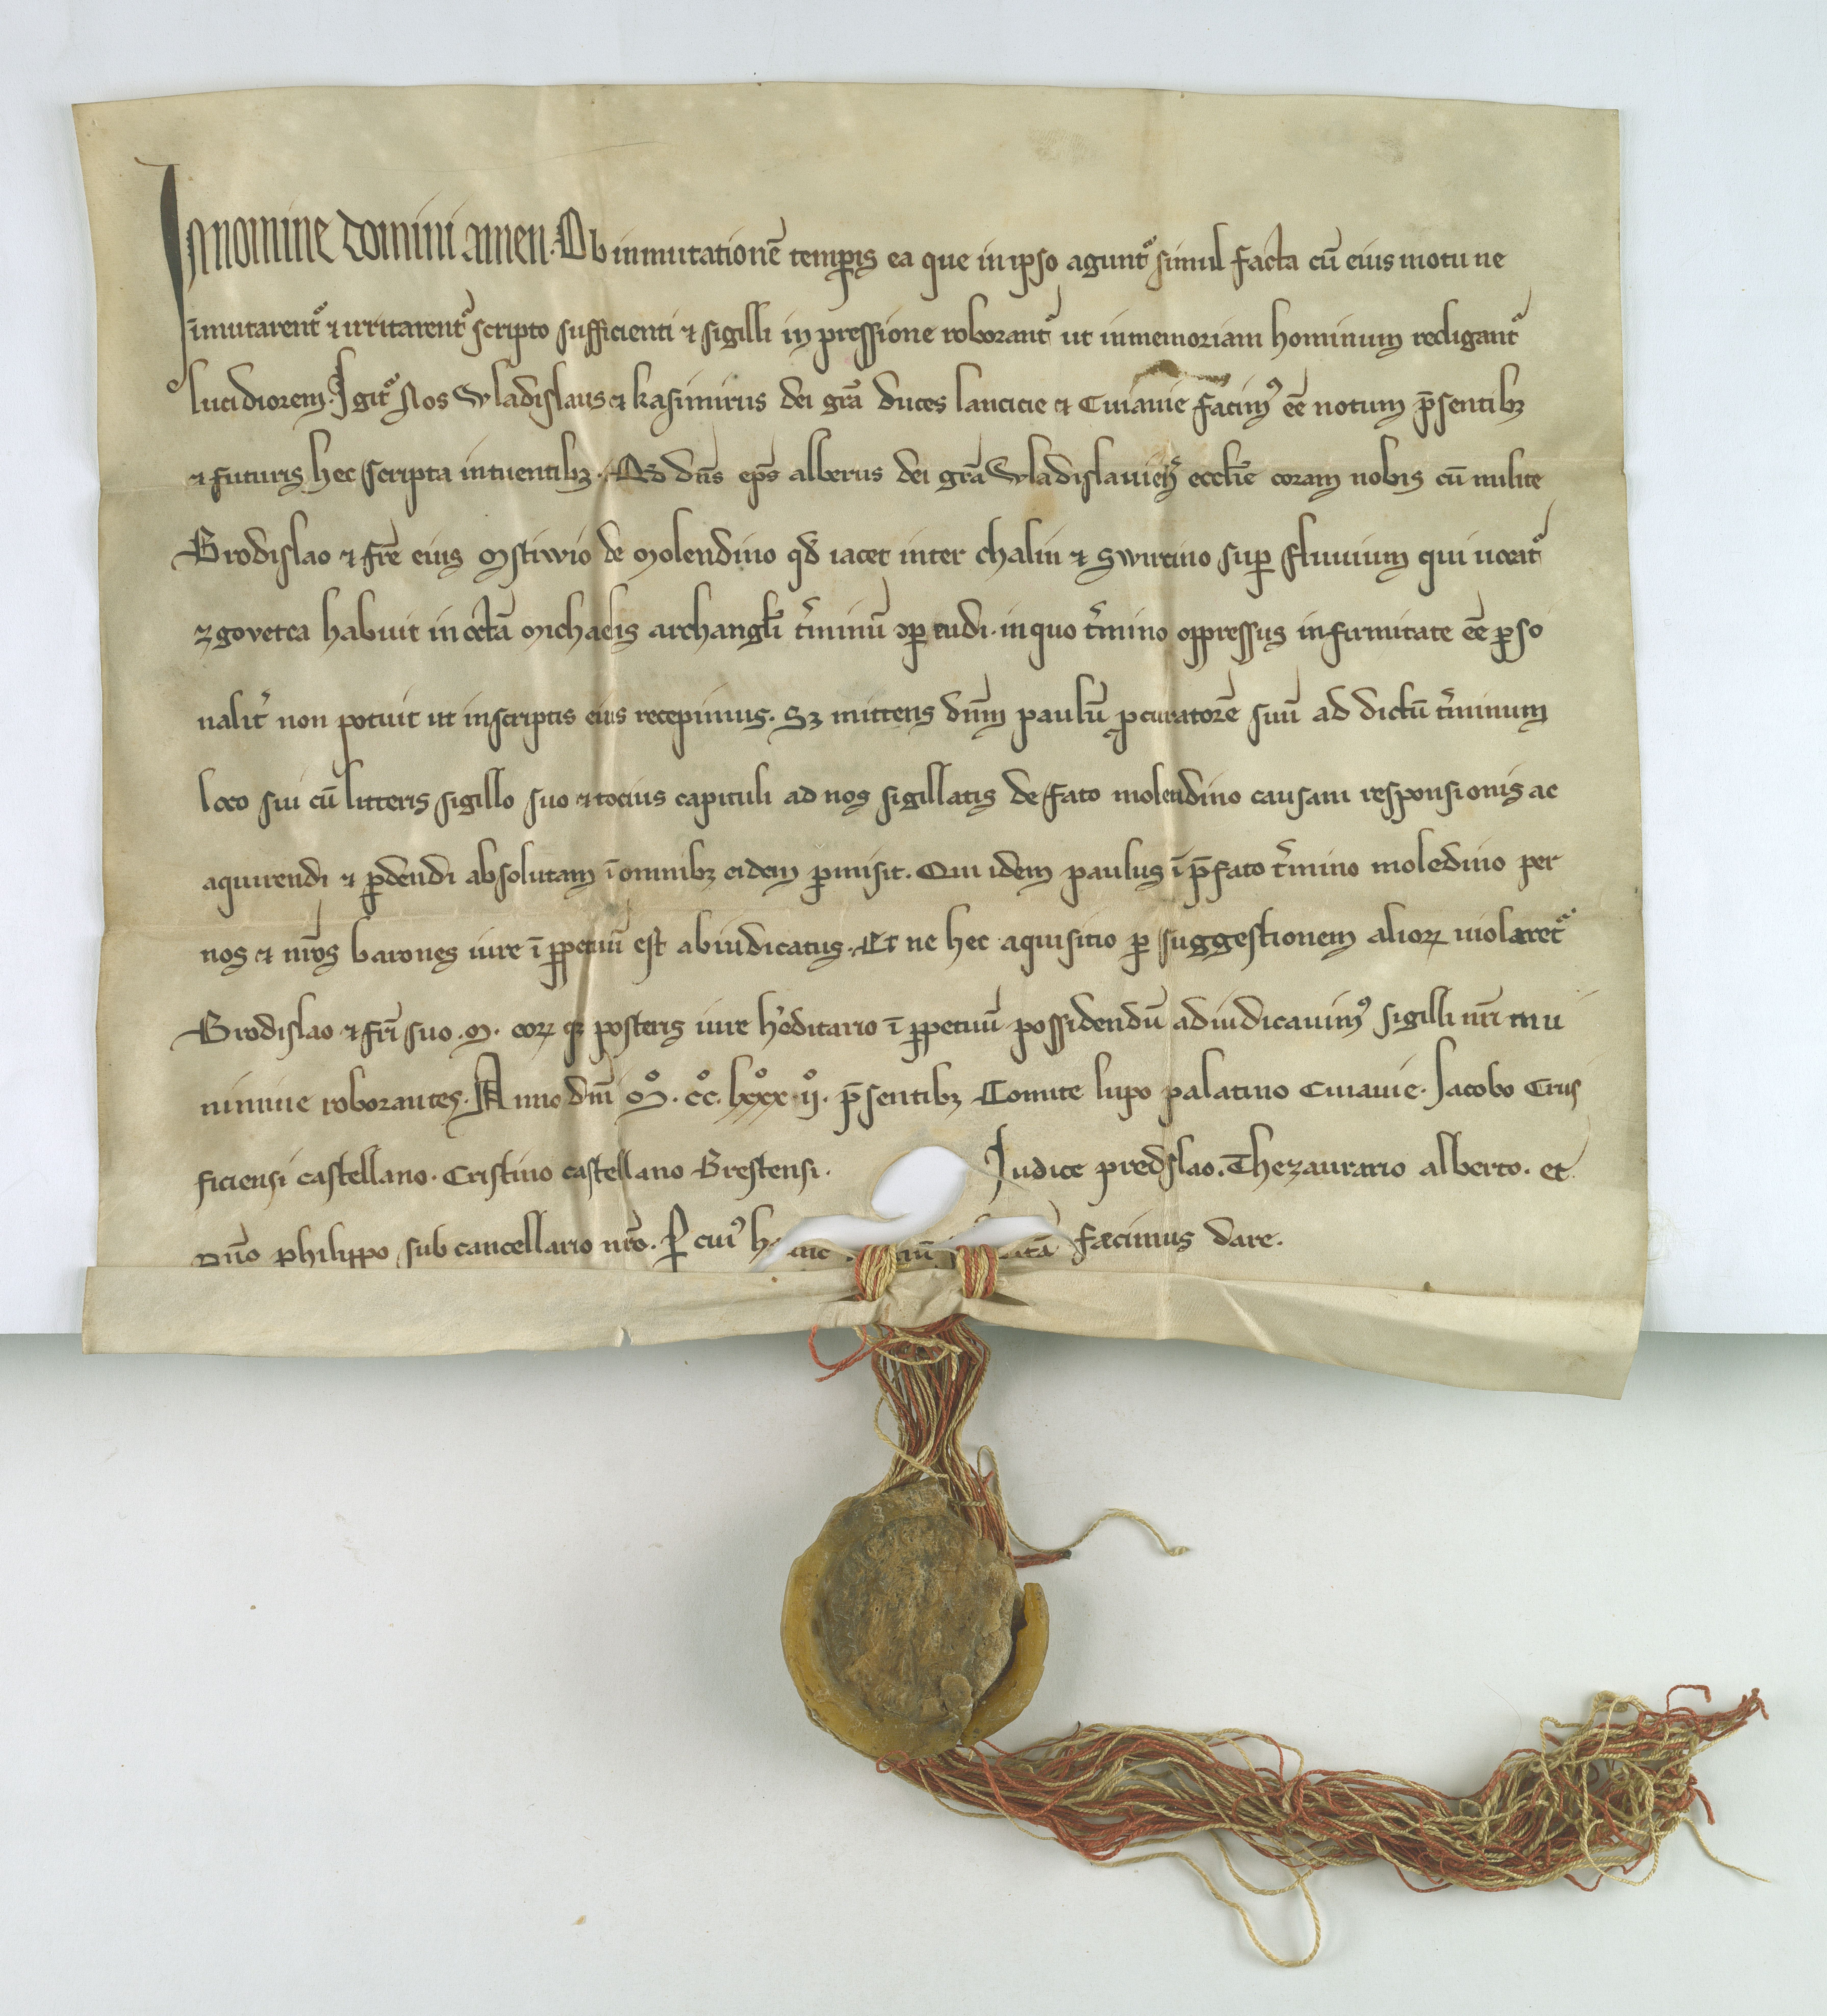 In nomine domini amen. Ob inmutationē temꝑis ea que in ipso agunt᷑ simul facta cū eius motu ne
īmutarent᷑ ⁊ irritarent᷑ scripto sufficienti ⁊ sigilli in pressione roborant᷑ ut in memoriam hominum redigant᷑
lucidiorem. Igit᷑ Nos Wladislaus ⁊ kasimirus dei gr̄a duces lancicie ⁊ Cuiauie facimꝰ eē notum p̄sentibꝫ
⁊ futuris hec scripta intuentibꝫ. Qd̄ dn̄s ep̄s alberus dei gr̄a Wladislauien̄ eccl̄ie coram nobis cū milite
Brodislao ⁊ fr̄e eius Mstiwio de Molendino qd̄ iacet inter chalin ⁊ Swircino suꝑ fluuium qui uocat᷑
zgovetca habuit in octā Michaelis archangl̄i t̓minū ꝯꝑendi. in quo t̓mino oppressus infirmitate eē ꝑso
nalit̓ non potuit ut in scriptis eius recepimus. Sꝫ mittens dn̄m paulū ꝓcuratorē suū ad dictū t̓minum
loco sui cū litteris sigillo suo ⁊ tocius capituli ad nos sigillatis de fato molendino causam responsionis ac
aquirendi ⁊ ꝑdendi absolutam ī omnibꝫ eidem ꝑmisit. Qui idem paulus ī p̄fato t̓mino moledino per
nos ⁊ nr̄os barones iure ī ꝑpetuū est abiudicatus. Et ne hec aquisitio ꝑ suggestionem alioꝝ uiolaret᷑
Brodislao ⁊ fr̄i suo .M. eoꝝ qꝫ posteris iure h̓editario ī ꝑpetuū possidendū adiudicauimꝰ sigilli nr̄i mu
nimine roborantes. Anno dn̄i M̊. cc̊. lxxx̊. ij̊. p̄sentibꝫ Comite lupo palatino Cuiauie. Jacobo Crus
ficiensi castellano. Cristino castellano Brestensi. Iudice predslao. Thezaurario alberto. et
Dn̄o philippo sub cancellario nr̄o. ꝑ cuiꝰ fecimus dare.